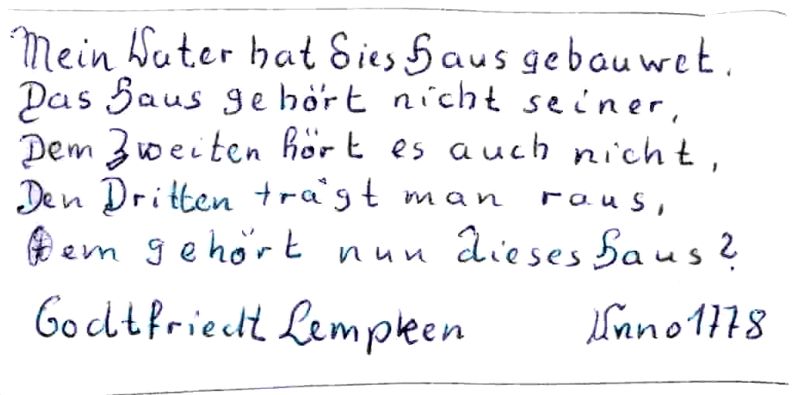 Mein Vater hat dies Haus gebauwet.
Das Haus gehört nicht seiner,
Dem Zweiten hört es auch nicht,
Den Dritten trägt man raus,
Wem gehört nun dieses Haus?
Godtfriedt Lempken Anno 1778